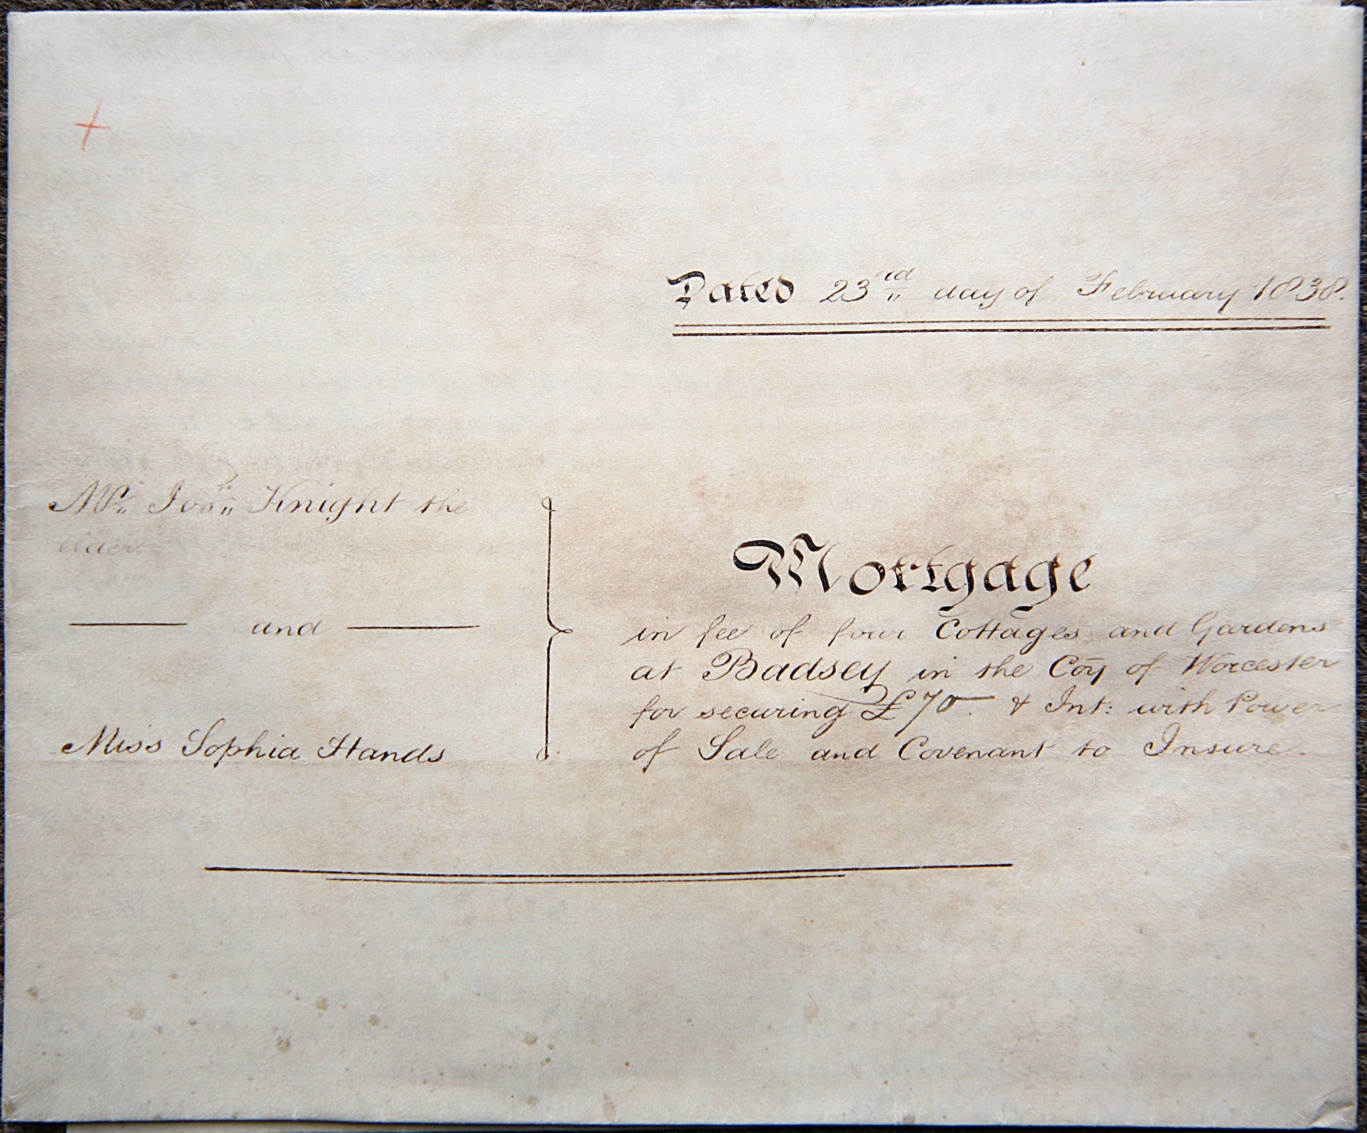 Dated 23rd day of February 1838.
Mr. Josh Knight the
elder
and
Miss Sophia Hands
Mortgage
in fee of four Cottages and Gardens
at Badsey in the Coy of Worcester
for securing £70 & Int: with Power
of Sale and Covenant to Insure.